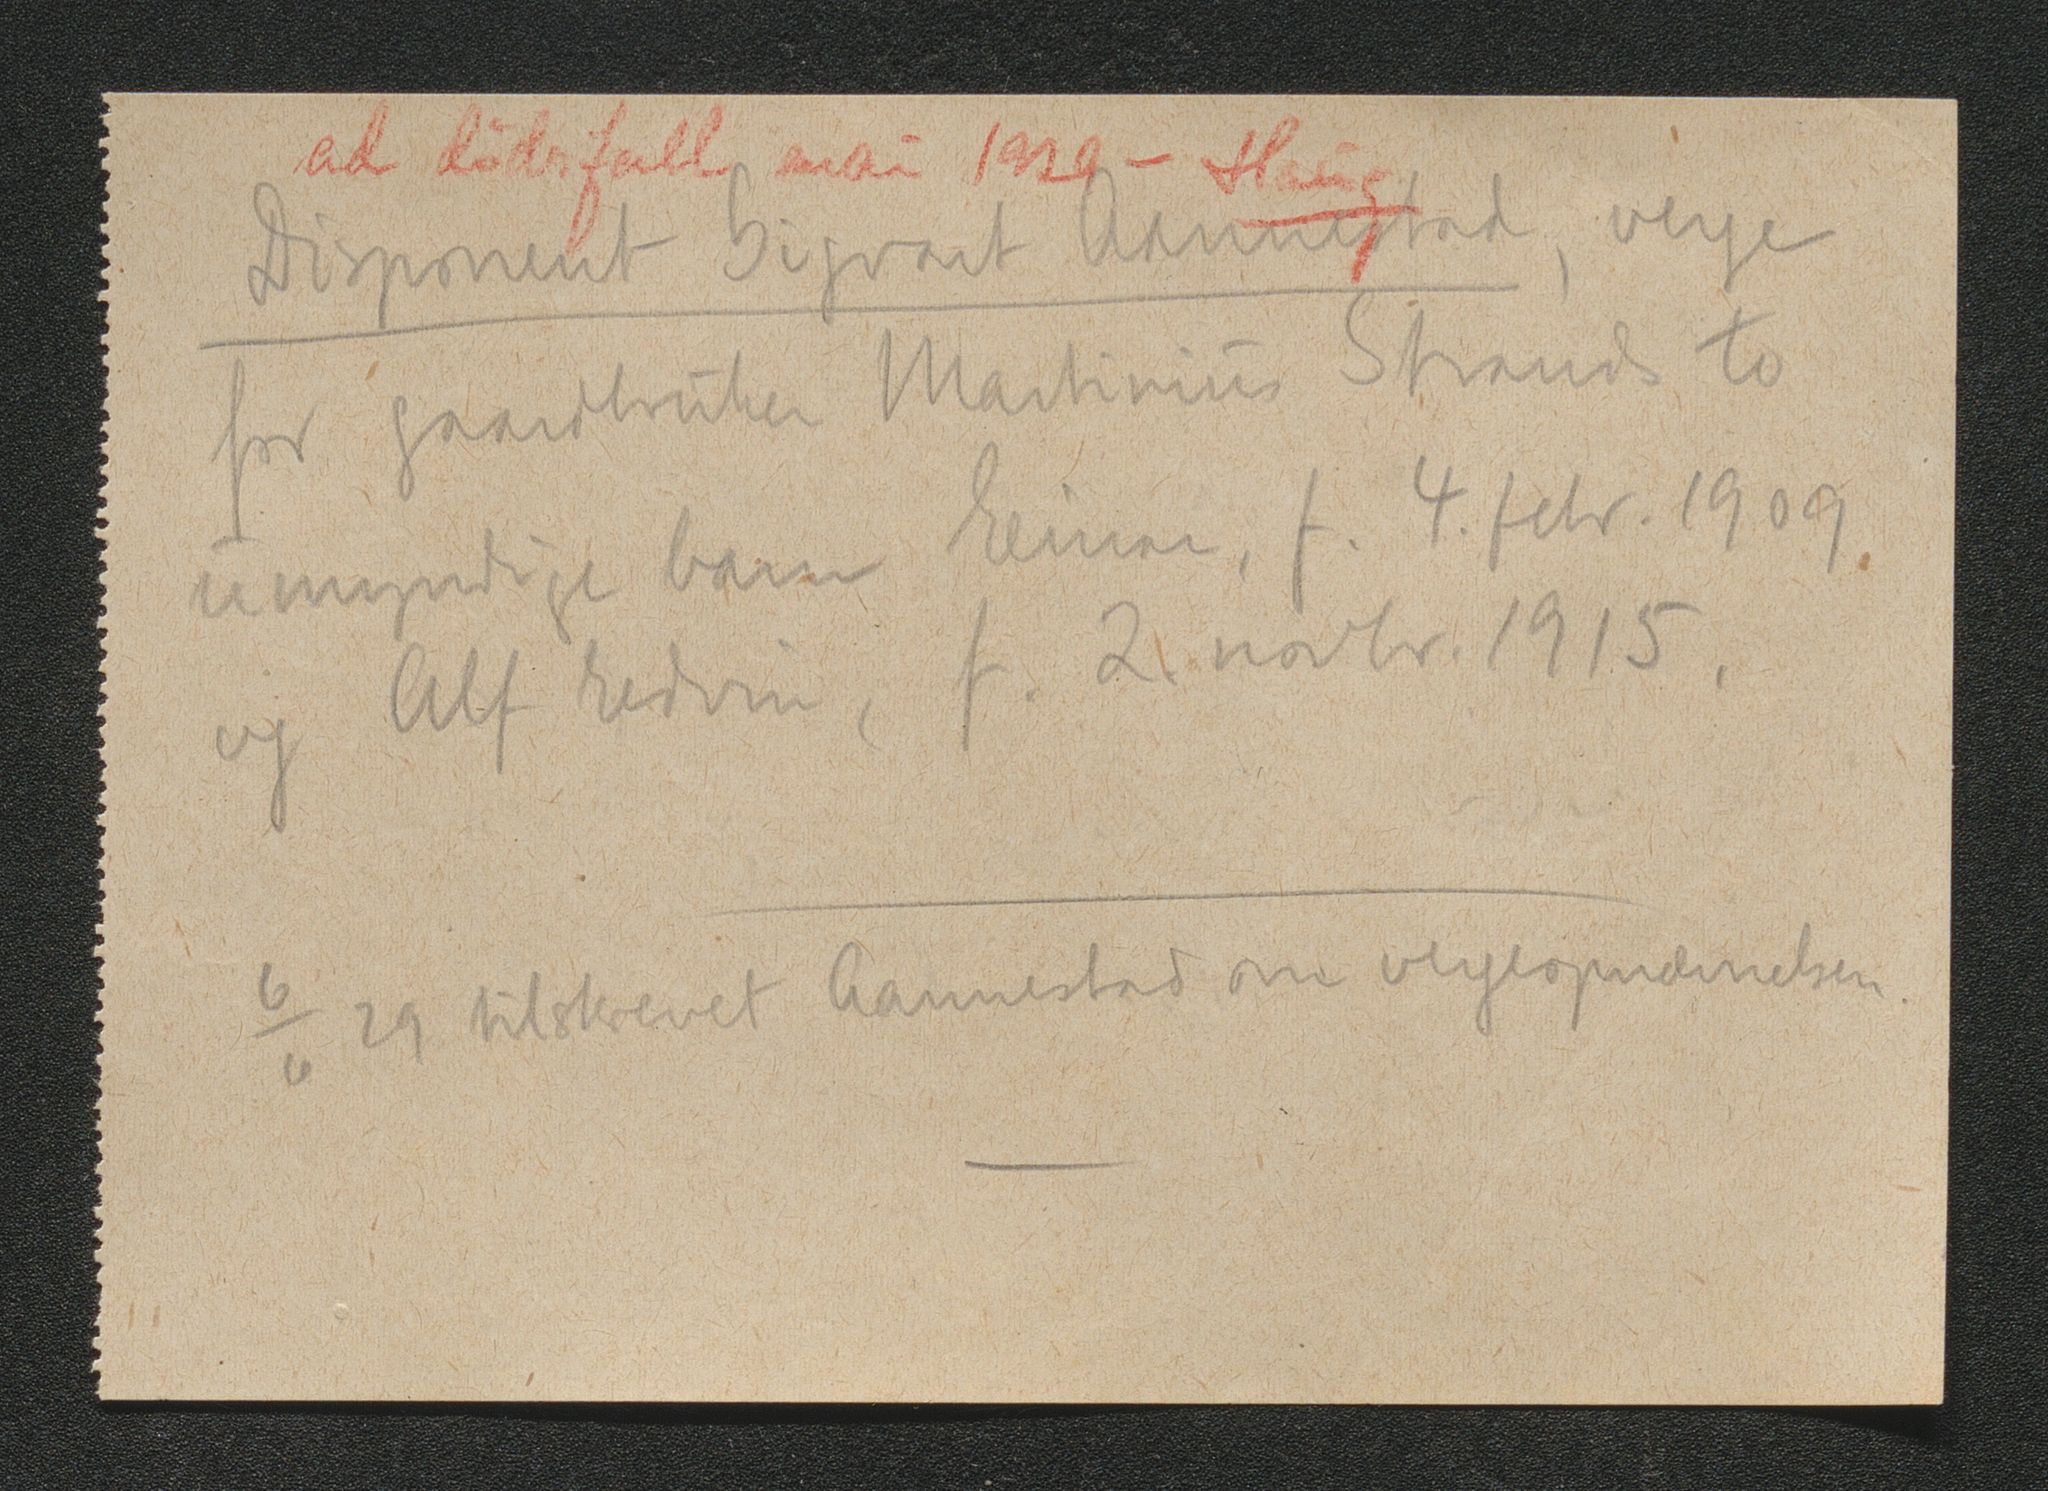 ad dödsfall mai 1929 – Haug
Disponent Sigvart Aannestad, verge
for gaardbruker Martinius Strands to
umyndige barn Einar, f. 4. febr. 1909
og Alf Edvin, f. 2. novbr. 1915.
6/6 29 tilskrevet Aannestad om vergeopnævnelsen.